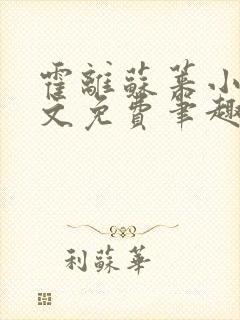 霍離蘇蔂小
文免費筆趣
利蘇華